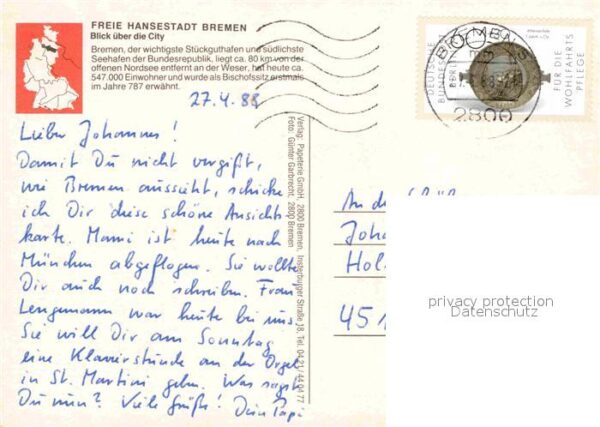 FREIE HANSESTADT BREMEN
Blick über die City
Bremen, der wichtigste Stückguthafen und südlichste
Seehafen der Bundesrepublik, liegt ca. 80 km von der
offenen Nordsee entfernt an der Weser, hat heute ca.
547.000 Einwohner und wurde als Bischofssitz erstmals
im Jahre 787 erwähnt.
27.4.88
Lieber Johannes!
Damit Du nicht vergißt,
wie Bremen aussieht, schicke
ich Dir diese schöne Ansichts
karte. Mami ist heute nach
München abgeflogen. Sie wollte
Dir auch noch schreiben. Frau
Lengemann war heute bei uns.
Sie will Dir am Sonntag
eine Klavierstunde an der Orgel
in St. Martini geben. Was sagst
Du nun? Viele Grüße! Dein Papi
Verlag: Papeterie GmbH, 2800 Bremen, Insterburger Straße 18, Tel. 04 21/44 04 77
Foto: Günter Garbrecht, 2800 Bremen
DEUTSCHE
BUNDESPOST
BERLIN
FÜR DIE
WOHLFAHRTS
PFLEGE
BREMEN
2800
An die
Joha
Hol
451
privacy protection
Datenschutz